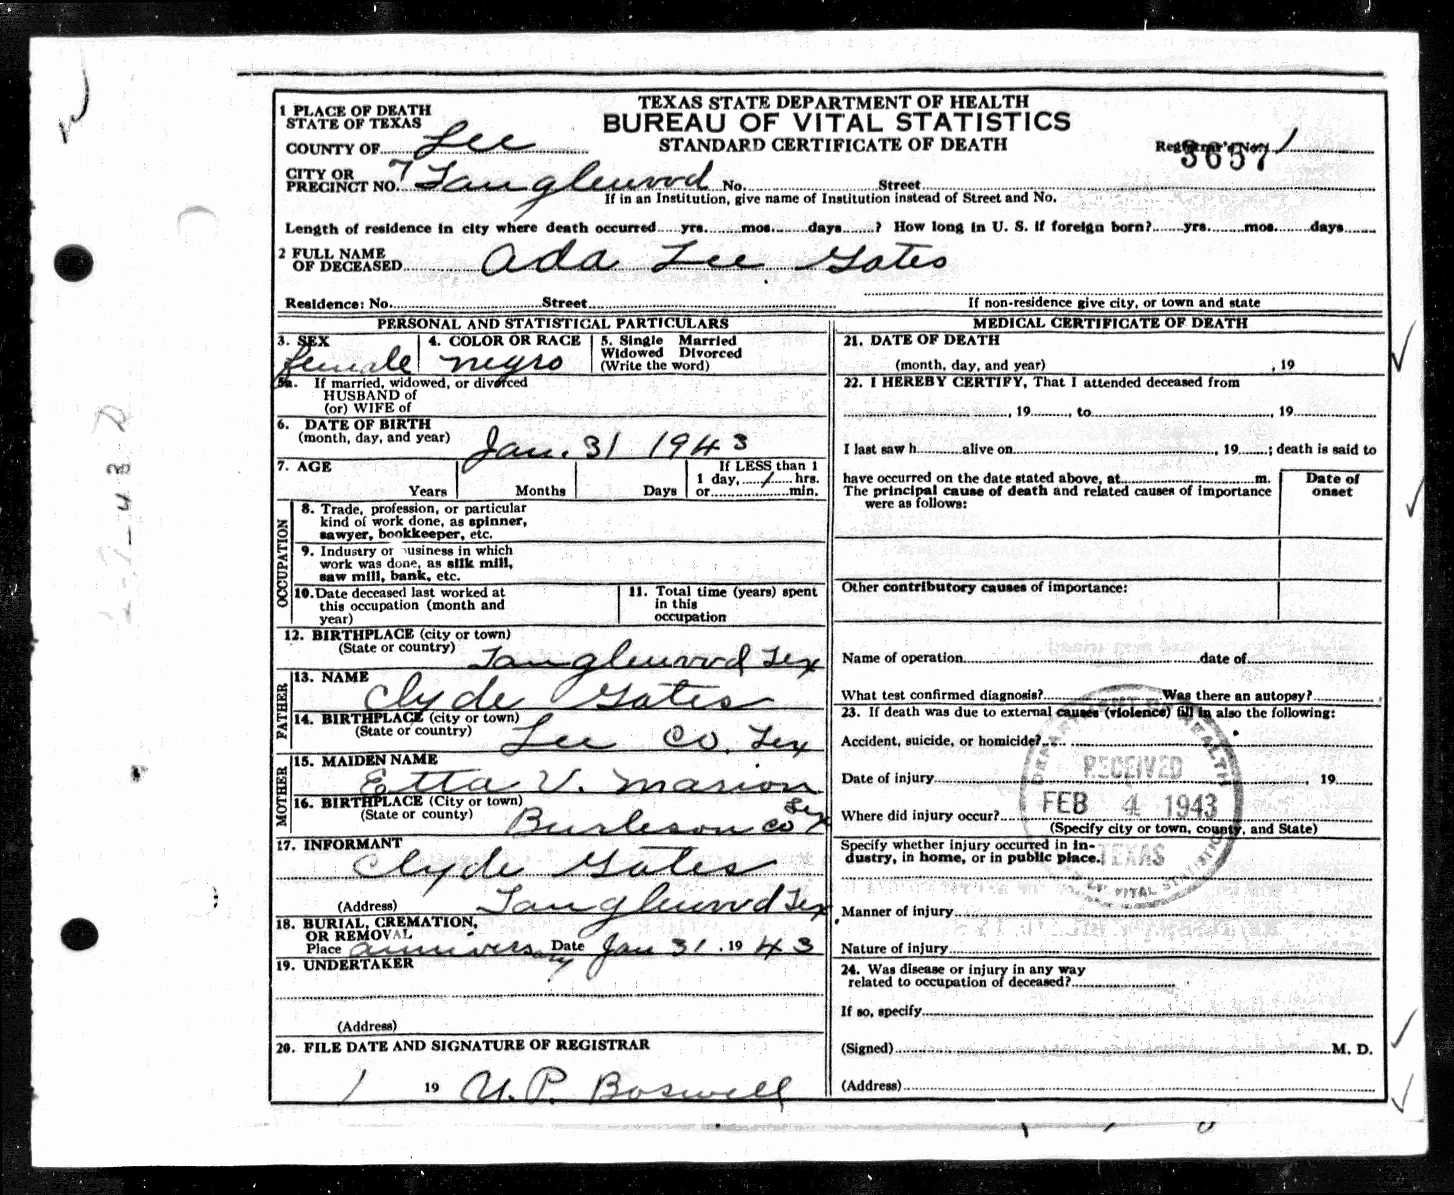 TEXAS STATE DEPARTMENT OF HEALTH
BUREAU OF VITAL STATISTICS
STANDARD CERTIFICATE OF DEATH
1 PLACE OF DEATH
STATE OF TEXAS
COUNTY OF Lee
Registrar's No. 1
3657
CITY OR
PRECINCT NO. 7 Tanglewood No. Street
If in an Institution, give name of Institution instead of Street and No.
Length of residence in city where death occurred yrs. mos. days ? How long in U. S. if foreign born? yrs. mos. days
2 FULL NAME
OF DECEASED Ada Lee Gates
Residence: No. Street
If non-residence give city, or town and state
PERSONAL AND STATISTICAL PARTICULARS
3. SEX 4. COLOR OR RACE 5. Single Married
Widowed Divorced
(Write the word)
female negro
5a. If married, widowed, or divorced
HUSBAND of
(or) WIFE of
6. DATE OF BIRTH
(month, day, and year) Jan. 31 1943
7. AGE If LESS than 1
1 day, 1 hrs.
Years Months Days or min.
OCCUPATION
8. Trade, profession, or particular
kind of work done, as spinner,
sawyer, bookkeeper, etc.
9. Industry or business in which
work was done, as silk mill,
saw mill, bank, etc.
10. Date deceased last worked at
this occupation (month and
year)
11. Total time (years) spent
in this
occupation
12. BIRTHPLACE (city or town)
(State or country) Tanglewood Tex
FATHER
13. NAME Clyde Gates
14. BIRTHPLACE (city or town)
(State or country) Lee Co. Tex
MOTHER
15. MAIDEN NAME Etta V. Marion
16. BIRTHPLACE (City or town)
(State or county) Burleson Co Tex
17. INFORMANT
Clyde Gates
(Address) Tanglewood Tex
18. BURIAL, CREMATION,
OR REMOVAL
Place anniversary Date Jan 31. 19 43
19. UNDERTAKER
(Address)
20. FILE DATE AND SIGNATURE OF REGISTRAR
1 19 U. P. Boswell
MEDICAL CERTIFICATE OF DEATH
21. DATE OF DEATH
(month, day, and year) , 19
22. I HEREBY CERTIFY, That I attended deceased from
, 19 , to , 19
I last saw h alive on , 19 ; death is said to
have occurred on the date stated above, at m.
The principal cause of death and related causes of importance
were as follows:
Date of
onset
Other contributory causes of importance:
Name of operation date of
What test confirmed diagnosis? Was there an autopsy?
23. If death was due to external causes (violence) fill in also the following:
Accident, suicide, or homicide?
Date of injury , 19
Where did injury occur?
(Specify city or town, county, and State)
Specify whether injury occurred in in-
dustry, in home, or in public place.
Manner of injury
Nature of injury
24. Was disease or injury in any way
related to occupation of deceased?
If so, specify
(Signed) M. D.
(Address)
RECEIVED
FEB 4 1943
TEXAS